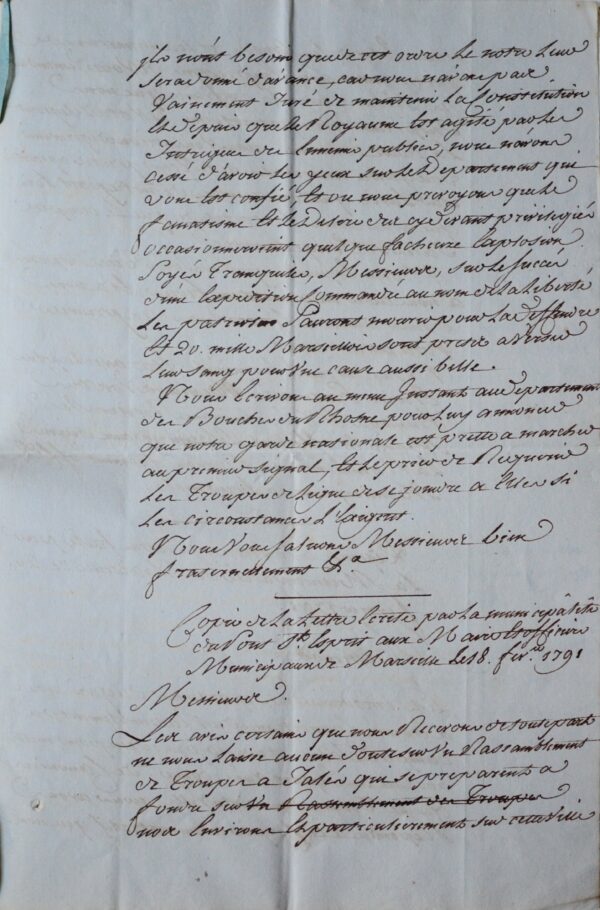 ils n'ont besoin que de cet ordre le notre leur
sera donné d'avance, car nous n'avons pas
vainement juré de maintenir la Constitution
Et depuis que le Royaume Est agité par les
Intrigues des Ennemis publics, nous n'avons
cessé d'avoir les yeux sur le Departement qui
vous Est confié, Et ou nous prevoyons que le
fanatisme Et le des cy devant privilegiés
occasionneroient quelque facheuse Explosion
Soyés Tranquiles, Messieurs, sur le succès
d'une Expedition Commandée au nom de la Liberté
Les patriotes Sauront mourir pour la deffendre
Et 20. mille Marseillois sont prets a verser
leur sang pour une cause aussi belle.
Nous Ecrivons au meme Instant au departement
des Bouches du Rhosne pour luy annoncer
que notre garde nationale est prette a marcher
au premier signal, Et le prier de Requerir
Les Troupes de Ligne de se joindre a Elles si
Les circonstances L'Exigent.
Nous Vous saluons Messieurs bien
fraternellement &a
Copie de la Lettre Ecrite par la municipalité
du Pont St. Esprit aux Maire Et officiers
Municipaux de Marseille le 18. fevr. 1791
Messieurs.
Les avis certains que nous Recevons de toute part
ne nous Laisse aucun doute sur un Rassemblement
de Troupes a Jalès qui se preparent a
fondre sur un Rassemblement des Troupes
nos Environs Et particulierement sur cette ville